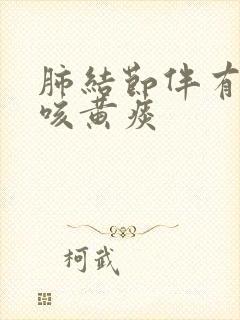 肺結節伴有
咳黃痰
柯武